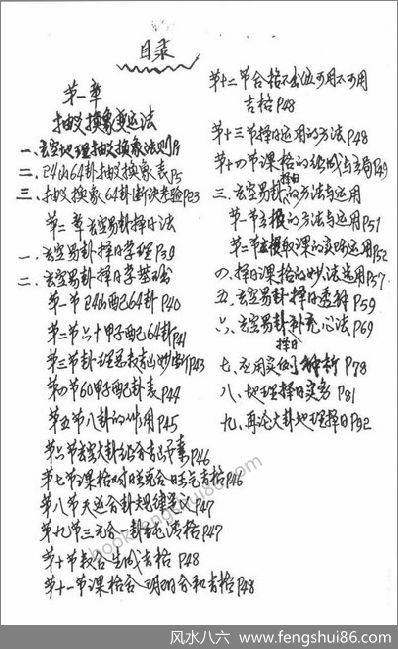 目录
第一章
抽爻换象变运法
一、玄空地理抽爻换象法则P1
二、24山64卦抽爻换象表P5
三、抽爻换象64卦断决经验P23
第二章玄空易卦择日法
一、玄空易卦择日学理P39
二、玄空易卦择日学基础
第一节24山配64卦P40
第二节六十甲子配64卦P41
第三节卦理
P43
第四节60甲子配卦表P44
第五节八卦的作用P45
第六节玄空大卦
P46
第七节课格
合旺元吉格P46
第八节大运合卦规律
P47
第九节三元合一卦
格P47
第十节数合生成吉格P48
第十一节课格合
吉格P48
第十二节合格不
可用不可用
吉格P48
第十三节择日运用的方法P48
第十四节课格的组成与布局P49
三、玄空易卦择日的方法与运用
第一节
的方法与运用P51
第二节
取课的实际运用P52
四、择日课格的妙法运用P57
五、玄空易卦择日透解P59
六、玄空易卦择日补充心法P69
七、应用实例解析P78
八、地理择日实务P81
九、再论大卦地理择日P92
book.fengshui86.com
风水八六:www.fengshui86.com